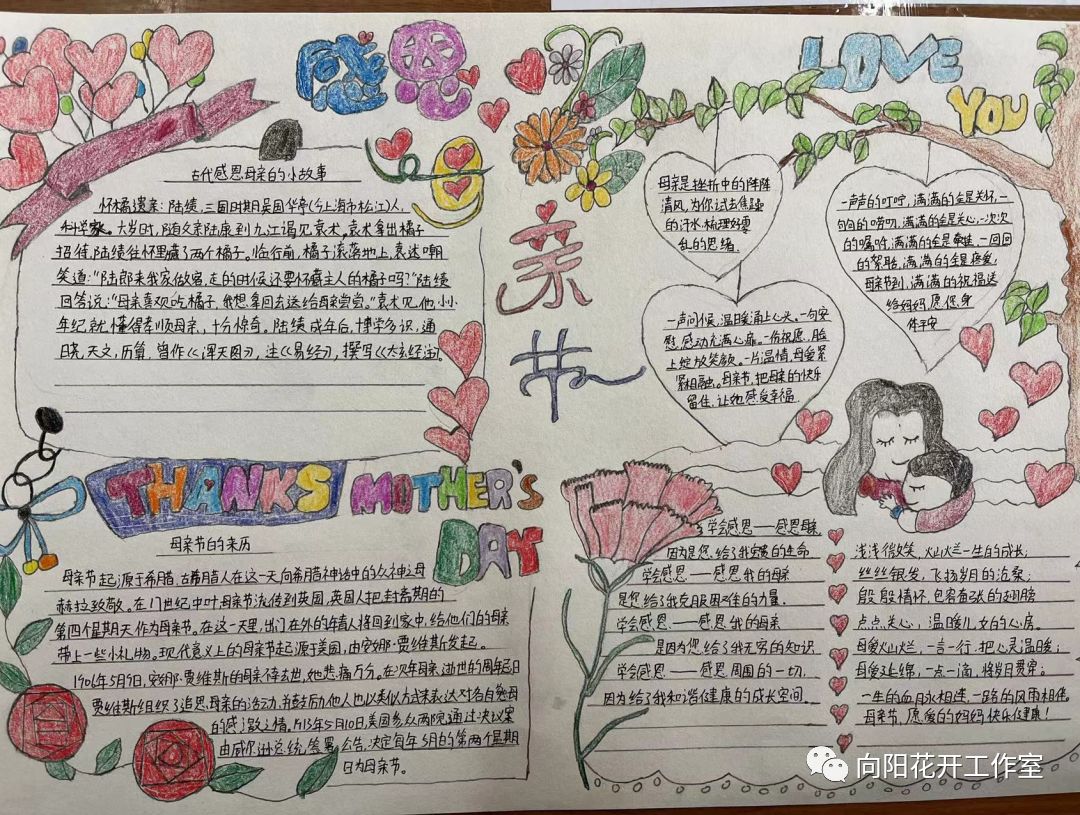 感恩
母亲节
LOVE
YOU
古代感恩母亲的小故事
怀橘遗亲：陆绩，三国时期吴国华亭(今上海市松江)人，
科学家。六岁时，随父亲陆康到九江谒见袁术，袁术拿出橘子
招待，陆绩往怀里藏了两个橘子。临行前，橘子滚落地上，袁术嘲
笑道："陆郎来我家做客，走的时候还要怀藏主人的橘子吗？"陆绩
回答说："母亲喜欢吃橘子，我想拿回去送给母亲尝尝。"袁术见他小小
年纪就懂得孝顺母亲，十分惊奇。陆绩成年后，博学多识，通
晓天文，历算，曾作《浑天图》，注《易经》，撰写《太玄经注》
母亲是挫折中的阵阵
清风，为你拭去焦躁
的汗水，梳理好零
乱的思绪
一声声的叮咛，满满的全是关怀，一
句句的唠叨，满满的全是关心，一次次
的嘱咐，满满的全是牵挂，一回回
的絮聒，满满的全是疼爱，
母亲节到，满满的祝福送
给妈妈，愿您身
体平安
一声问候，温暖涌上心头。一句安
慰，感动充满心扉。一份祝愿，脸
上绽放笑颜。一片温情，母爱紧
紧相融。母亲节，把母亲的快乐
留住，让她感受幸福
THANKS MOTHER'S
DAY
母亲节的来历
母亲节起源于希腊，古希腊人在这一天向希腊神话中的众神之母
赫拉致敬。在17世纪中叶，母亲节流传到英国，英国人把封斋期的
第四个星期天作为母亲节。在这一天里，出门在外的年轻人将回到家中，给他们的母亲
带上一些小礼物。现代意义上的母亲节起源于美国，由安娜·贾维斯发起。
1906年5月9日，安娜·贾维斯的母亲不幸去世，她悲痛万分。在次年母亲逝世的周年忌日
贾维斯组织了追思母亲的活动，并鼓励他人也以类似方式来表达对各自慈母
的感激之情。1913年5月10日，美国参众两院通过决议案
由威尔逊总统签署公告，决定每年5月的第两个星期
日为母亲节。
学会感恩——感恩母亲，
因为是您，给了我宝贵的生命
学会感恩——感恩我的母亲
是您给了我克服困难的力量，
学会感恩——感恩我的母亲
是因为您，给了我无穷的知识
学会感恩——感恩周围的一切，
因为给了我和谐健康的成长空间
浅浅微笑，灿烂一生的成长；
丝丝银发，飞扬岁月的沧桑；
殷殷情怀，包容奋张的翅膀
点点关心，温暖儿女的心房。
母爱灿烂，一言一行，把心灵温暖；
母爱延绵，一点一滴，将岁月贯穿；
一生的血月永相连，一路的风雨相伴。
母亲节，愿爱的妈妈快乐健康！
向阳花开工作室